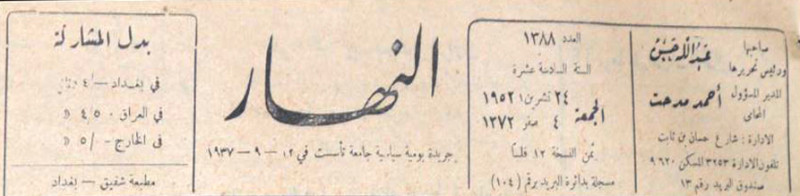 صاحبها
ورئيس تحريرها
عبدالله حسن
المدير المسؤول
أحمد مدحت
المحامي
الادارة : شارع حسان بن ثابت
تلفون الادارة ٣٢٥٣ المسكن ٩٦٢٠
صندوق البريد رقم ١٣
العدد ١٣٨٨
السنة السادسة عشرة
الجمعة
٢٤ تشرين١ ١٩٥٢
٤ صفر ١٣٧٢
ثمن النسخة ١٢ فلساً
مسجلة بدائرة البريد برقم (١٠٤)
النهار
جريدة يومية سياسية جامعة تأسست في ١٢ — ٩ — ١٩٣٧
بدل المشاركة
في بغداد —/٤
في العراق ٤/٥٠٠ »
في الخارج —/٥ »
مطبعة شفيق — بغداد